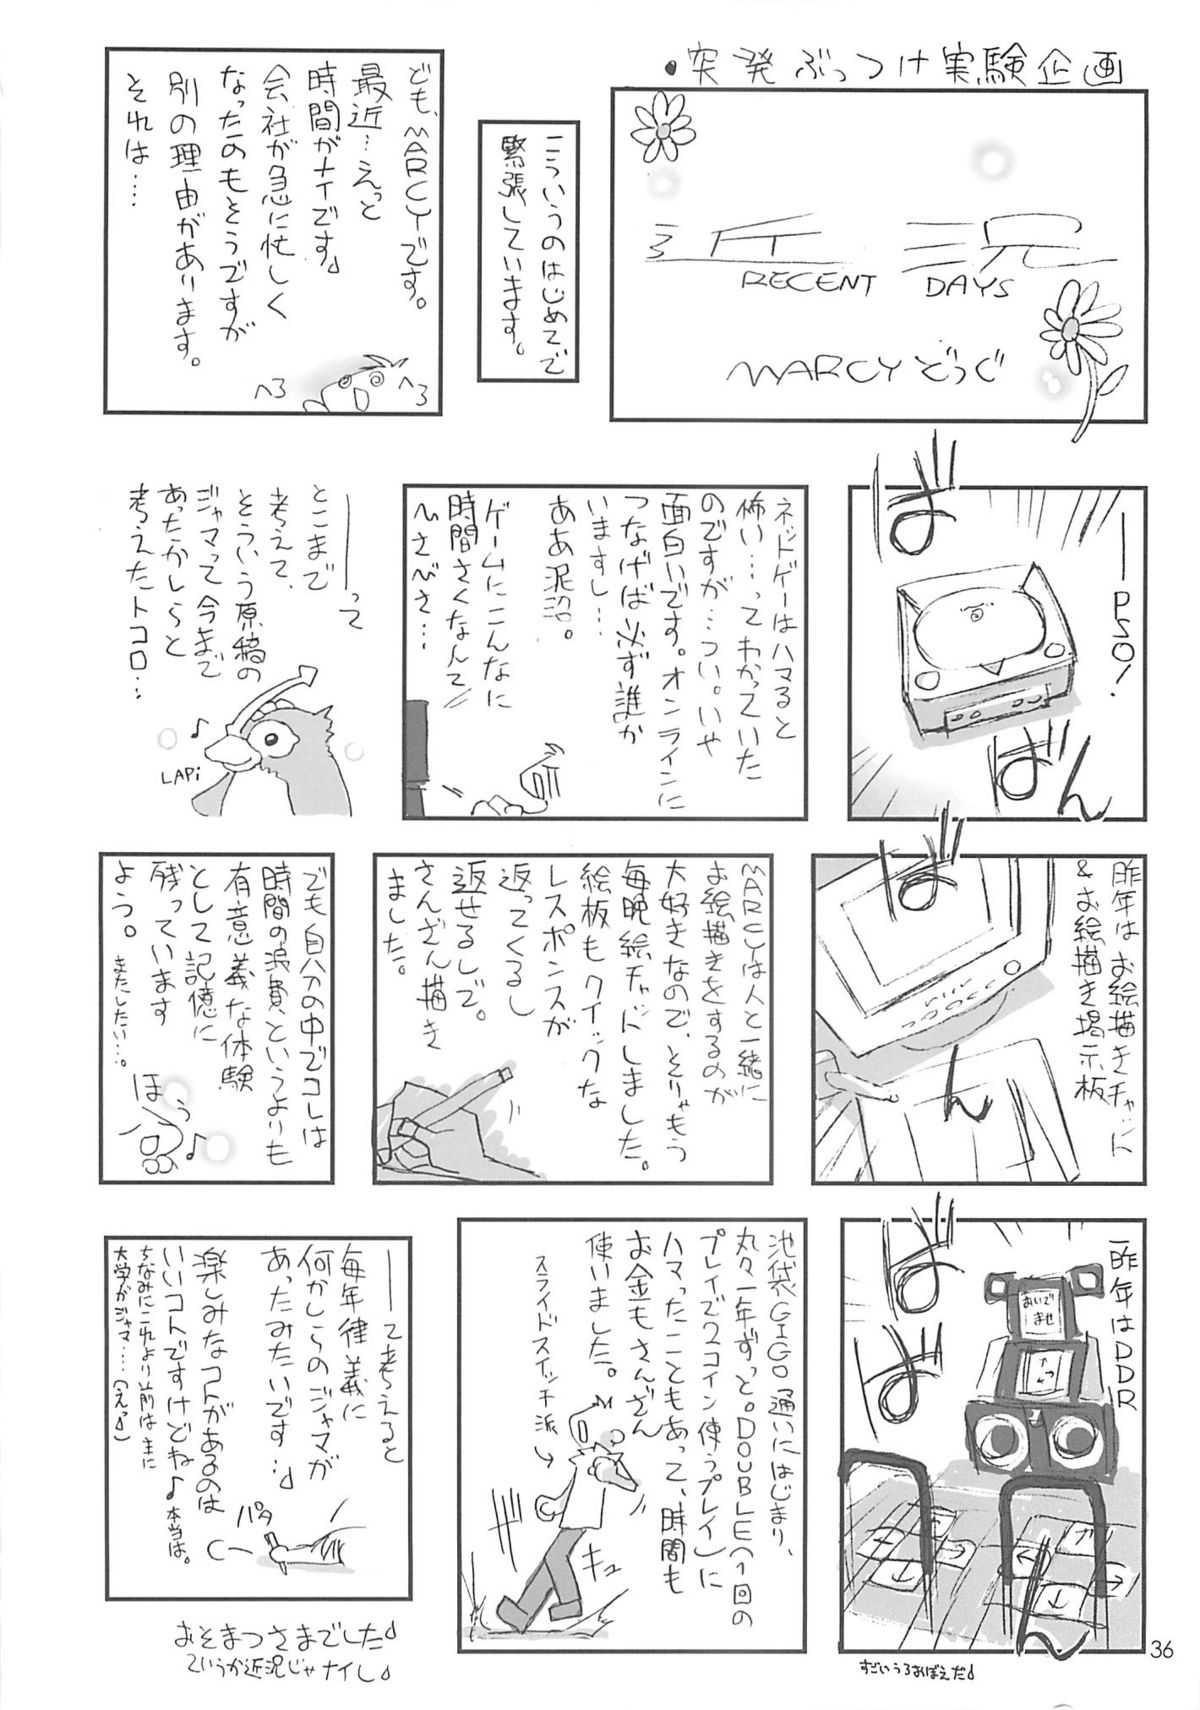 •突発ぶっつけ実験企画
RECENT DAYS
MARCYどうぐ
こういうのはじめてで
緊張しています。
ども、MARCYです。
最近…えっと
時間がナイです。
会社が急に忙しく
なったのもそうですが
別の理由があります。
それは……
へろ
へろ
ーPSO!
ばばん
ネットゲーはハマると
怖い…ってわかっていた
のですが…つい。いや
面白いです。オンラインに
つなげば必ず誰か
いますし…
ああ泥沼。
ゲームにこんなに
時間さくなんて
ーーって
とこまで
考えて、
そういう原稿の
ジャマって今まで
あったかしらと
考えたトコロ…
♪
LAPi
昨年はお絵描きチャット
&お絵描き掲示板
ばん
MARCYは人と一緒に
お絵描きをするのが
大好きなので、とりゃもう
毎晩絵チャットしました。
絵板もクイックな
レスポンスが
返ってくるし
返せるしで。
さんざん描き
ました。
でも自分の中でコレは
時間の浪費、というよりも
有意義な体験
として記憶に
残っています
よう。またしたい…。
ほうっ♪
一昨年はDDR
ばばーん
おいで
ませ
すごいうろおぼえだ♪
池袋GIGO通いにはじまり、
丸々一年ずっと。DOUBLE(1回の
プレイで2コイン使うプレイ)に
ハマったこともあって、時間も
お金もさんざん
使いました。
スライドスイッチ派→
M
キュ
ーーて考えると
毎年律義に
何かしらのジャマが
あったみたいです…♪
楽しみなコトがあるのは
いいコトですけどね♪本当は。
ちなみにこれより前は主に
大学がジャマ……(えっ♪)
パタ
おそまつさまでした♪
ていうか近況じゃナイし♪
36